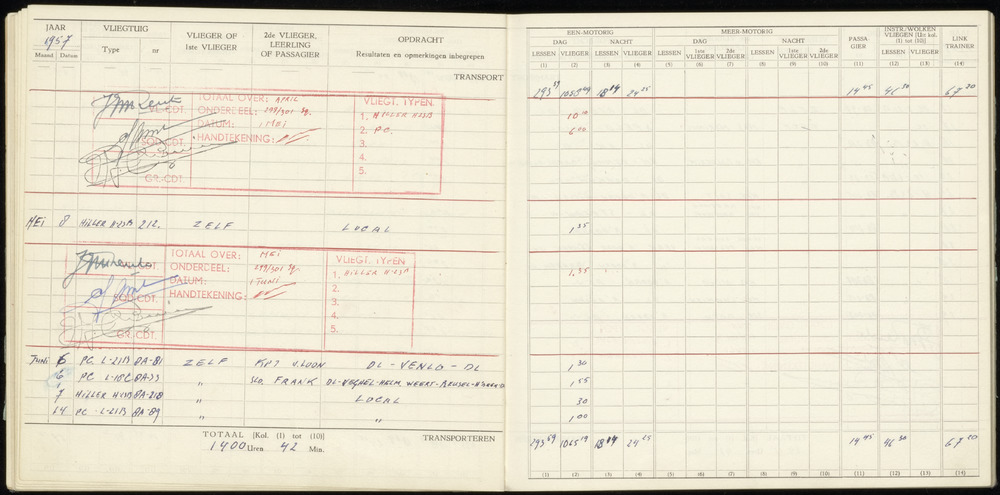 JAAR
1957
Maand Datum
VLIEGTUIG
Type nr
VLIEGER OF
1ste VLIEGER
2de VLIEGER,
LEERLING
OF PASSAGIER
OPDRACHT
Resultaten en opmerkingen inbegrepen
TRANSPORT
TOTAAL OVER: APRIL
ONDERDEEL: 299/301 Sq.
DATUM: 1 MEI
HANDTEKENING:
GR.-CDT.
VLIEGT. TYPEN
1. HILLER H23B
2. P.C.
3.
4.
5.
MEI 8 HILLER H-23B 212. ZELF LOCAL
TOTAAL OVER: MEI
ONDERDEEL: 299/301 Sq.
DATUM: 1 JUNI
HANDTEKENING:
GR.-CDT.
VLIEGT. TYPEN
1. HILLER H-23B
2.
3.
4.
5.
JUNI 6 PC. L-21B ZELF KPT V. LOON DL - VENLO - DL
6 PC L-18C " FRANK
7 HILLER H23B " LOCAL
14 PC - L-21B " "
TOTAAL [Kol. (1) tot (10)] TRANSPORTEREN
1400 Uren 42 Min.
EEN-MOTORIG
DAG NACHT
LESSEN VLIEGER LESSEN VLIEGER
(1) (2) (3) (4)
MEER-MOTORIG
DAG NACHT
LESSEN 1ste VLIEGER 2de VLIEGER LESSEN 1ste VLIEGER 2de VLIEGER
(5) (6) (7) (8) (9) (10)
PASSA
GIER
(11)
INSTR. WOLKEN
VLIEGEN [Uit kol.
(1) tot (10)]
LESSEN VLIEGER
(12) (13)
LINK
TRAINER
(14)
293 59 24 25 14 45 46 30 67 20
10 10
6 00
1 35
1,35
1 30
1 55
30
1 00
293 59 1065 19 24 25 14 45 46 30 67 20
(1) (2) (3) (4) (5) (6) (7) (8) (9) (10) (11) (12) (13) (14)